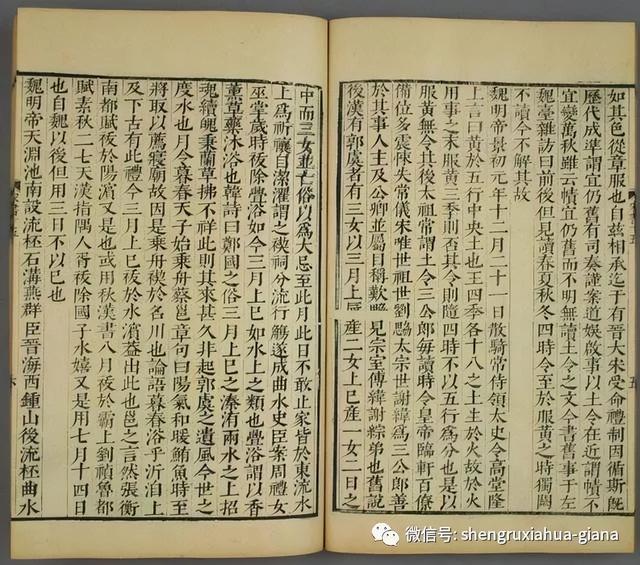 如其色從章服也自兹相承迄于有晉大宋受命禮制因循斯旣
歷代成準謂宜仍舊有司奏謹案道娛啟事以土令在近謂幘不
宜變萬秋雖云幘宜仍舊而不明無讀土令之文今書舊事于左
魏臺雜訪曰前後但見讀春夏秋冬四時令至於服黃之時獨闕
不讀今不解其故
魏明帝景初元年十二月二十一日散騎常侍領太史令高堂隆
上言曰黃於五行中央土也王四季各十八之土生於火故於火
用事之末服黃三季則否其令則隨四時不以五行爲分也是以
服黃無令其後太祖常謂土令三公郎每讀時令皇帝臨軒百僚
備位多震悚失常儀宋唯世祖世劉勰太宗世謝緯爲三公郎善
於其事人主及公卿並屬目稱歎勰見宗室傳緯謝綜弟也舊說
後漢有郭虞者有三女以三月上辰產二女上巳產一女二日之
中而三女並亡俗以爲大忌至此月此日不敢止家皆於東流水
上爲祈禳自潔濯謂之禊祠分流行觴遂成曲水史臣案周禮女
巫掌歲時祓除釁浴如今三月上巳如水上之類也釁浴謂以香
薰草藥沐浴也韓詩曰鄭國之俗三月上巳之溱洧兩水之上招
魂續魄秉蘭草拂不祥此則其來甚久非起郭虞之遺風今世之
度水也月令暮春天子始乘舟蔡邕章句曰陽氣和暖鮪魚時至
將取以薦寢廟故因是乘舟禊於名川也論語暮春浴乎沂自上
及下古有此禮今三月上巳祓於水濱蓋出此也邕之言然張衡
南都賦祓於陽濱又是也或用秋漢書八月祓於霸上劉禎魯都
賦素秋二七天漢指隅人胥祓除國子水嬉又是用七月十四日
也自魏以後但用三日不以巳也
魏明帝天淵池南設流杯石溝燕群臣晉海西鍾山後流杯曲水
微信号: shengruxiahua-giana